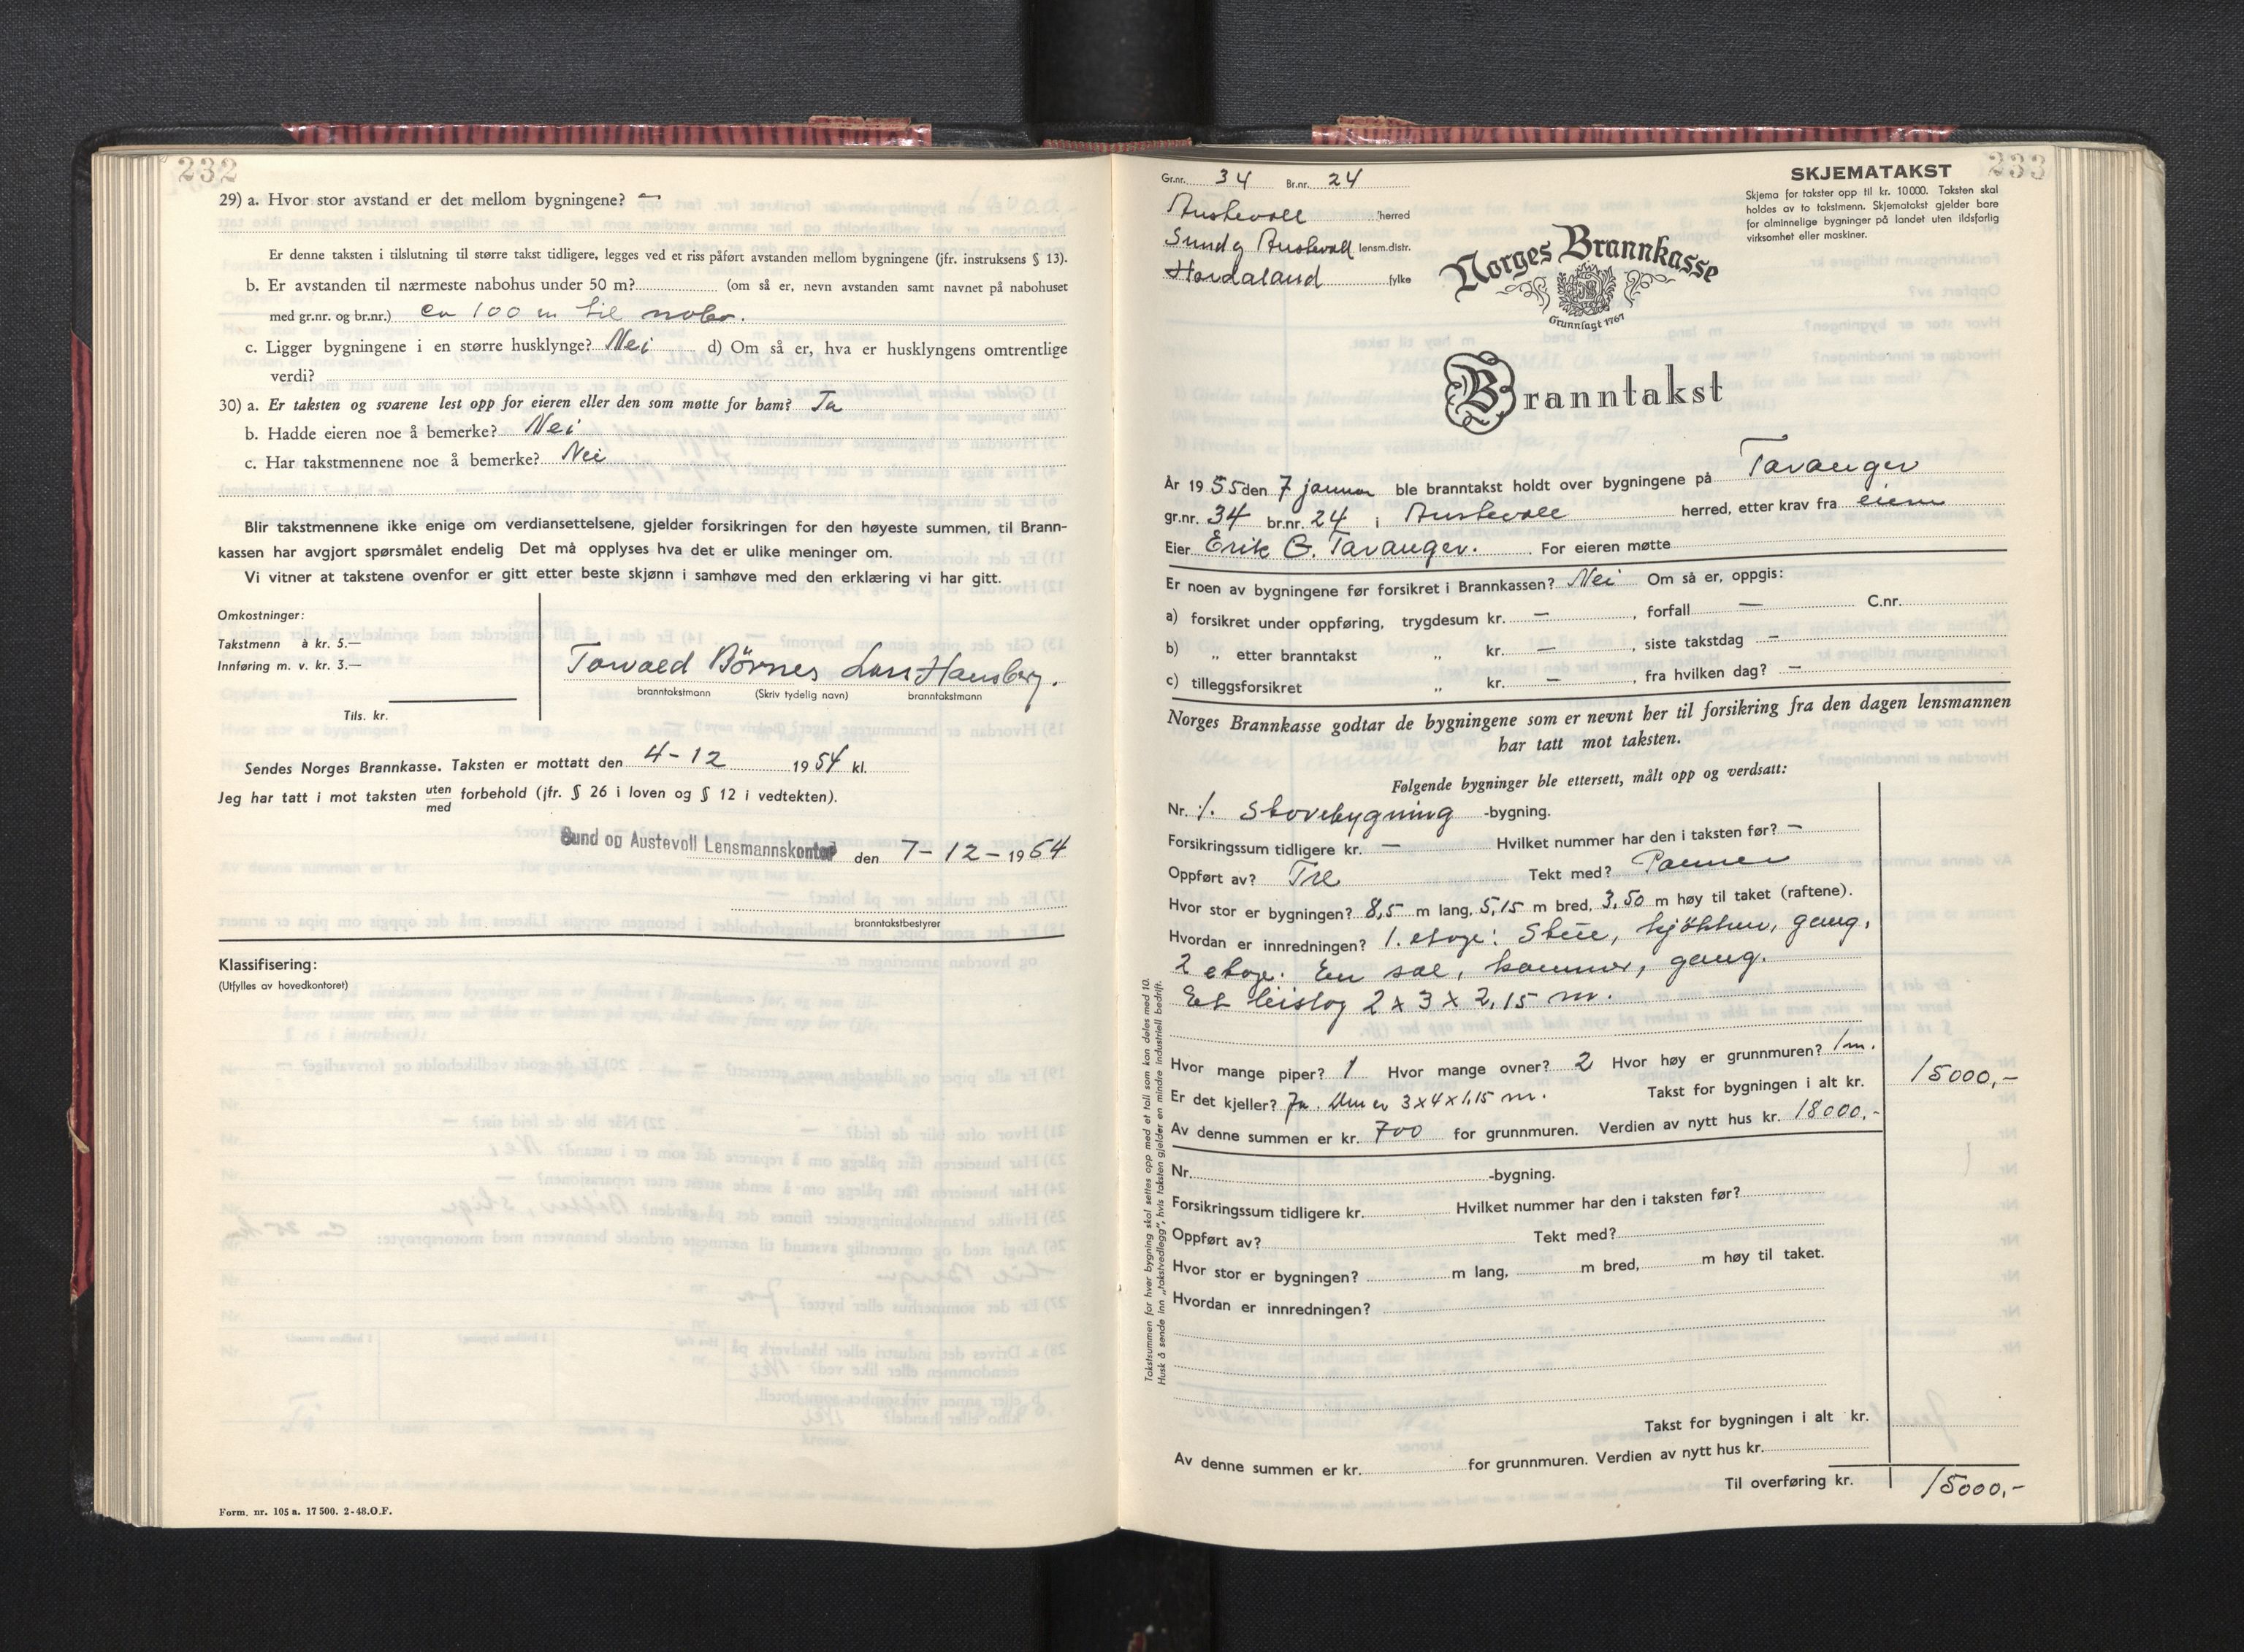 232
29) a. Hvor stor avstand er det mellom bygningene? —
Er denne taksten i tilslutning til større takst tidligere, legges ved et riss påført avstanden mellom bygningene (jfr. instruksens § 13).
b. Er avstanden til nærmeste nabohus under 50 m? (om så er, nevn avstanden samt navnet på nabohuset
med gr.nr. og br.nr.) ca 100 m til nabo.
c. Ligger bygningene i en større husklynge? Nei d) Om så er, hva er husklyngens omtrentlige
verdi?
30) a. Er taksten og svarene lest opp for eieren eller den som møtte for ham? Ja
b. Hadde eieren noe å bemerke? Nei
c. Har takstmennene noe å bemerke? Nei
Blir takstmennene ikke enige om verdiansettelsene, gjelder forsikringen for den høyeste summen, til Brann-
kassen har avgjort spørsmålet endelig Det må opplyses hva det er ulike meninger om.
Vi vitner at takstene ovenfor er gitt etter beste skjønn i samhøve med den erklæring vi har gitt.
Omkostninger:
Takstmenn à kr. 5.—
Innføring m. v. kr. 3.—
Tils. kr.
Torvald Börnes Lars Hansberg.
branntakstmann (Skriv tydelig navn) branntakstmann
Sendes Norges Brannkasse. Taksten er mottatt den 4-12 1954 kl.
Jeg har tatt i mot taksten uten med forbehold (jfr. § 26 i loven og § 12 i vedtekten).
Sund og Austevoll Lensmannskontor den 7-12-1954
branntakstbestyrer
Klassifisering:
(Utfylles av hovedkontoret)
Form. nr. 105 a. 17 500. 2-48.O.F.
233
Gr.nr. 34 Br.nr. 24
Austevoll herred
Sund og Austevoll lensm.distr.
Hordaland fylke
SKJEMATAKST
Skjema for takster opp til kr. 10000. Taksten skal
holdes av to takstmenn. Skjematakst gjelder bare
for alminnelige bygninger på landet uten ildsfarlig
virksomhet eller maskiner.
Norges Brannkasse
Grunnlagt 1767
Branntakst
År 1955 den 7 januar ble branntakst holdt over bygningene på Tavanger
gr.nr. 34 br.nr. 24 i Austevoll herred, etter krav fra eieren
Eier Erik G. Tavanger. For eieren møtte
Er noen av bygningene før forsikret i Brannkassen? Nei Om så er, oppgis:
a) forsikret under oppføring, trygdesum kr. — , forfall — C.nr.
b) „ etter branntakst „ kr. — , siste takstdag —
c) tilleggsforsikret „ kr. — , fra hvilken dag? —
Norges Brannkasse godtar de bygningene som er nevnt her til forsikring fra den dagen lensmannen
har tatt mot taksten.
Følgende bygninger ble ettersett, målt opp og verdsatt:
Nr. 1. Stovebygning -bygning.
Forsikringssum tidligere kr. — Hvilket nummer har den i taksten før? —
Oppført av? Tre Tekt med? Panner
Hvor stor er bygningen? 8,5 m lang, 5,15 m bred, 3,50 m høy til taket (raftene).
Hvordan er innredningen? 1. etage: Stue, kjökken, gang,
2 etage: En sal, kammer, gang.
Et bislag 2 x 3 x 2,15 m.
Hvor mange piper? 1 Hvor mange ovner? 2 Hvor høy er grunnmuren? 1 m.
Er det kjeller? Ja. Den er 3x4x1,15 m. Takst for bygningen i alt kr. 15000,-
Av denne summen er kr. 700 for grunnmuren. Verdien av nytt hus kr. 18000,-
Nr. -bygning.
Forsikringssum tidligere kr. Hvilket nummer har den i taksten før?
Oppført av? Tekt med?
Hvor stor er bygningen? m lang, m bred, m høy til taket.
Hvordan er innredningen?
Takst for bygningen i alt kr.
Av denne summen er kr. for grunnmuren. Verdien av nytt hus kr.
Til overføring kr. 15000,-
Takstsummen for hver bygning skal settes opp med et tall som kan deles med 10.
Husk å sende inn „takstvedlegg", hvis taksten gjelder en mindre industriell bedrift.